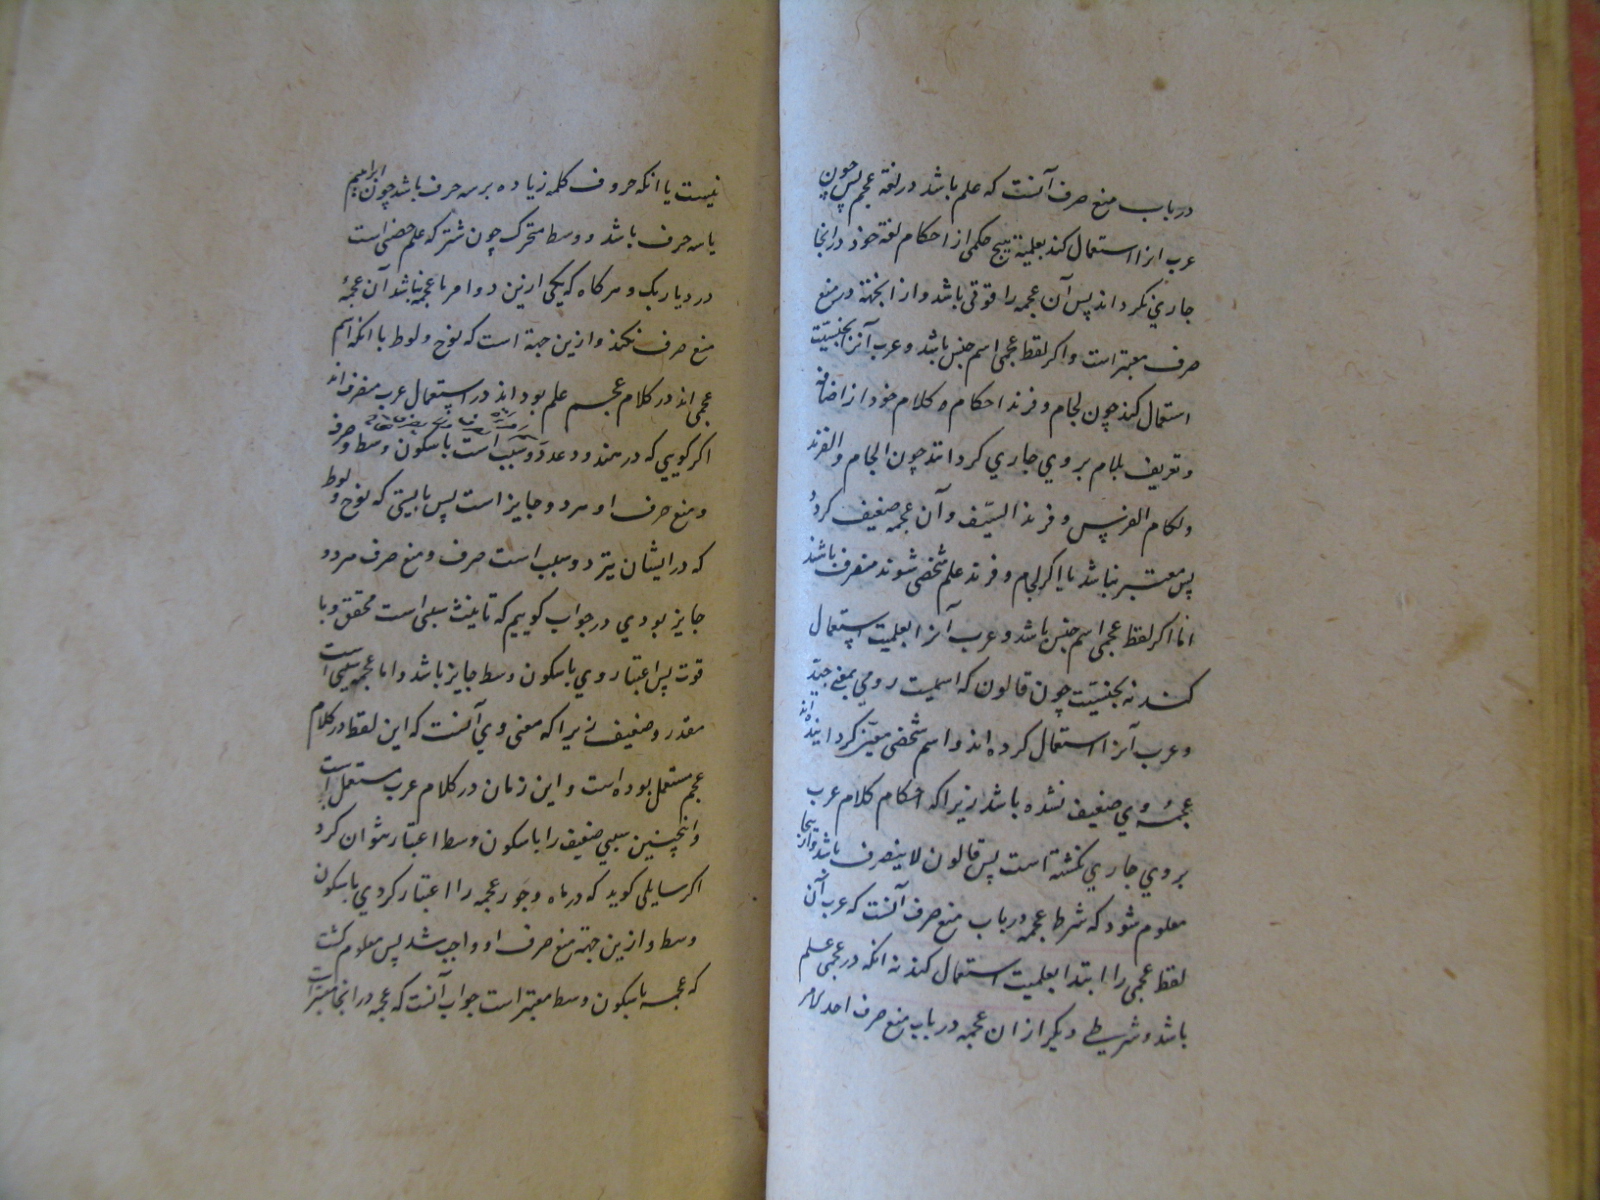 در باب منع صرف آنست که علم باشد در لغة عجم پس چون
عرب انرا استعمال کند بعلمیة هیچ حکمی از احکام لغة خود در انجا
جاري نکرداند پس آن عجمه را قوتی باشد و از انجهتة در منع
صرف معتبر است و اکر لفظ عجمی اسم جنس باشد و عرب آنرا بجنسیّت
استعمال کند چون لجام و فرند احکام کلام خود از اضافة
و تعریف بلام بر وي جاري کردانند چون اللجام و الفرند
و لکام الفرس و فرند السّیف و آن عجمه ضعیف کردد
پس معتبر نباشد تا اکر لجام و فرند علم شخصی شوند منصرف باشند
امّا اکر لفظ عجمی اسم جنس باشد و عرب آنرا بعلمیت استعمال
کنند نه بجنسیّت چون قالون که اسمیست رومي بمعنی جیّد
و عرب آنرا استعمال کرده اند و اسم شخصی معیّن کردانیده اند
عجمهٔ وي ضعیف نشده باشد زیرا که احکام کلام عرب
بر وي جاري نکشته است پس قالون لاینصرف باشد و از ینجا
معلوم شود که شرط عجمه در باب منع صرف آنست که عرب آن
لفظ عجمی را ابتدا بعلمیت استعمال کنند نه انکه در عجمی علم
باشد و شرطی دیکر از ان عجمه در باب منع صرف احد
نیست یا انکه حروف کلمه زیاده بر سه حرف باشد چون ابراهیم
یا سه حرف باشد و وسط متحرک چون شتر که علم حصنی است
در دیار بک و هرکاه که یکی ازین دو امر با عجمه نباشد آن عجمهٔ
منع صرف نکند و ازین جهة است که نوح و لوط با انکه اسم
عجمی اند در کلام عجم علم بوداند در استعمال عرب منصرف اند
اکر کویی که در هند و دعد دو سبب است با سکون وسط و صرف
و منع صرف او هر دو جایز است پس بایستی که نوح و لوط
که در ایشان نیز دو سبب است صرف و منع صرف هر دو
جایز بودي در جواب کوییم که تانیث سببی است محقق و با
قوت پس اعتبار وي با سکون وسط جایز باشد و اما عجمه سببی است
مقدر و ضعیف زیرا که معنی وي آنست که این لفظ در کلام
عجم مستعمل بوده است و این زمان در کلام عرب مستعمل است
و اینچنین سببي ضعیف را با سکون وسط اعتبار نتوان کرد
اکر سایلی کوید که در ماه و جور عجمه را اعتبار کردي با سکون
وسط و ازین جهة منع صرف او واجب شد پس معلوم کشت
که عجمه با سکون وسط معتبر است جواب آنست که عجمه در انجا معتبر است